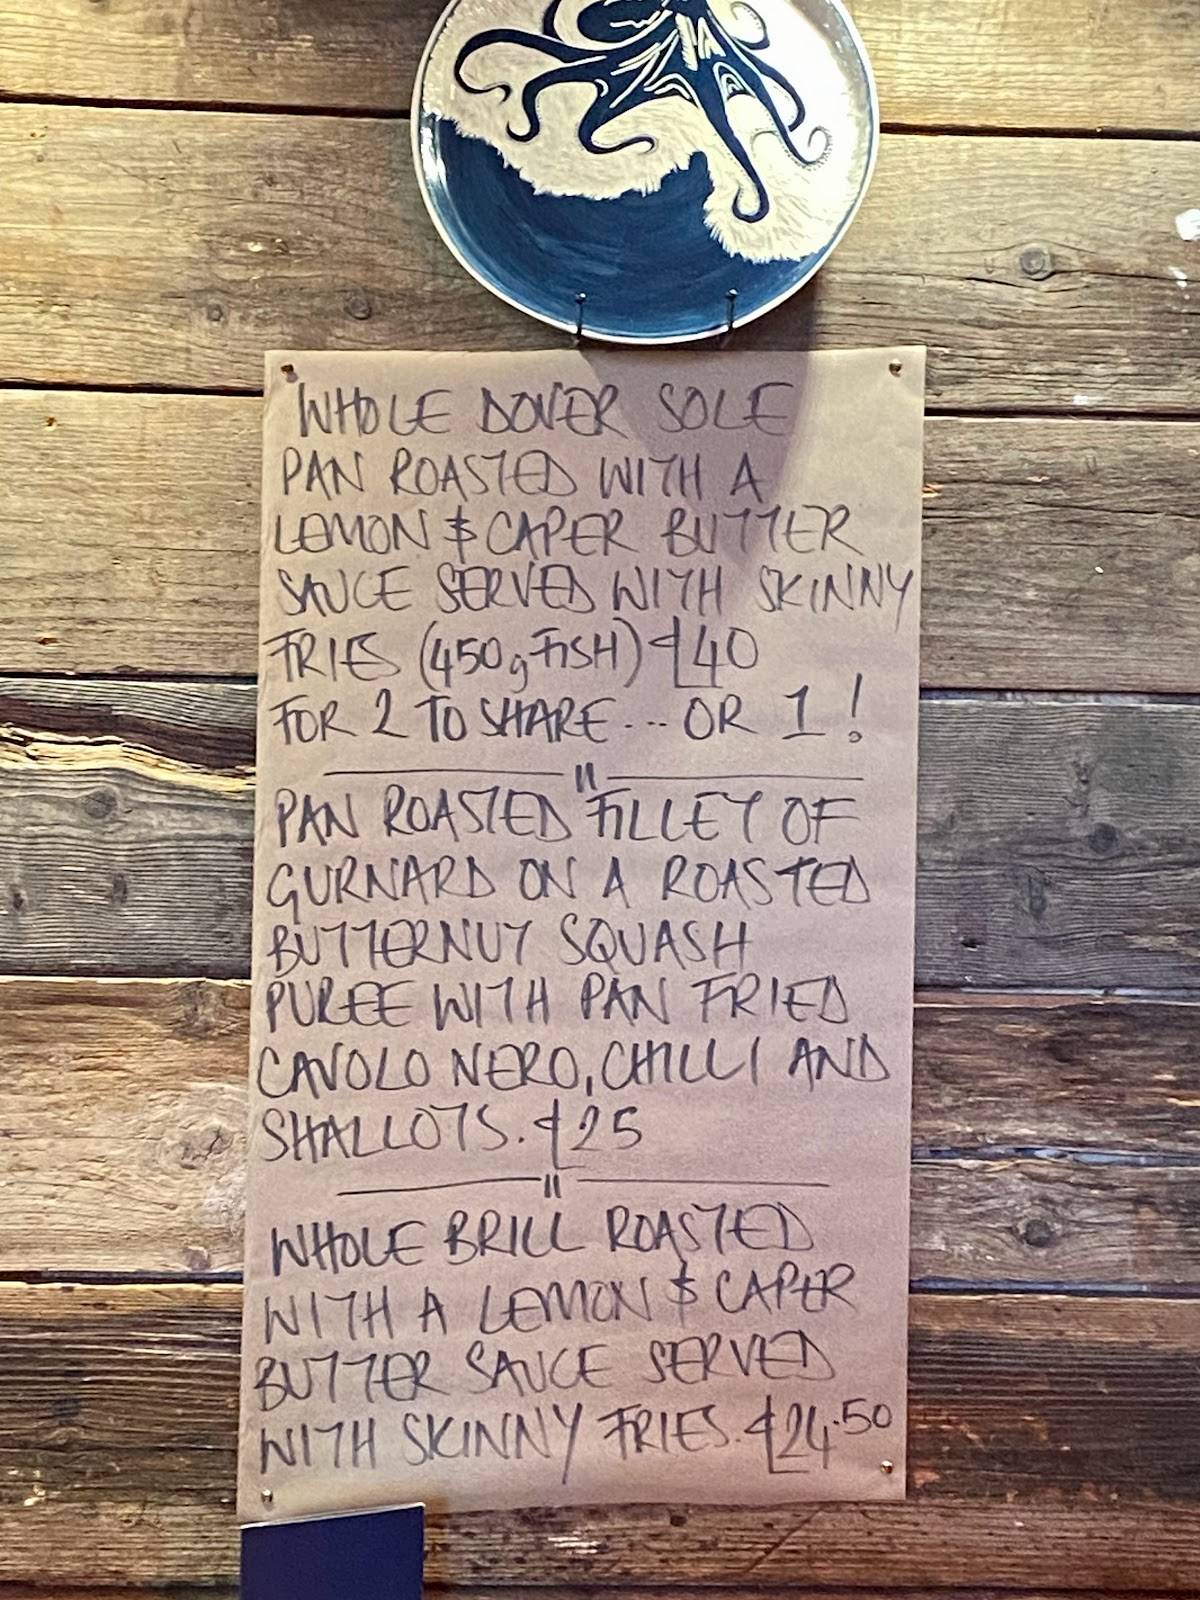 WHOLE DOVER SOLE
PAN ROASTED WITH A
LEMON & CAPER BUTTER
SAUCE SERVED WITH SKINNY
FRIES (450g FISH) £40
FOR 2 TO SHARE... OR 1!
PAN ROASTED FILLET OF
GURNARD ON A ROASTED
BUTTERNUT SQUASH
PUREE WITH PAN FRIED
CAVOLO NERO, CHILLI AND
SHALLOTS. £25
WHOLE BRILL ROASTED
WITH A LEMON & CAPER
BUTTER SAUCE SERVED
WITH SKINNY FRIES. £24.50